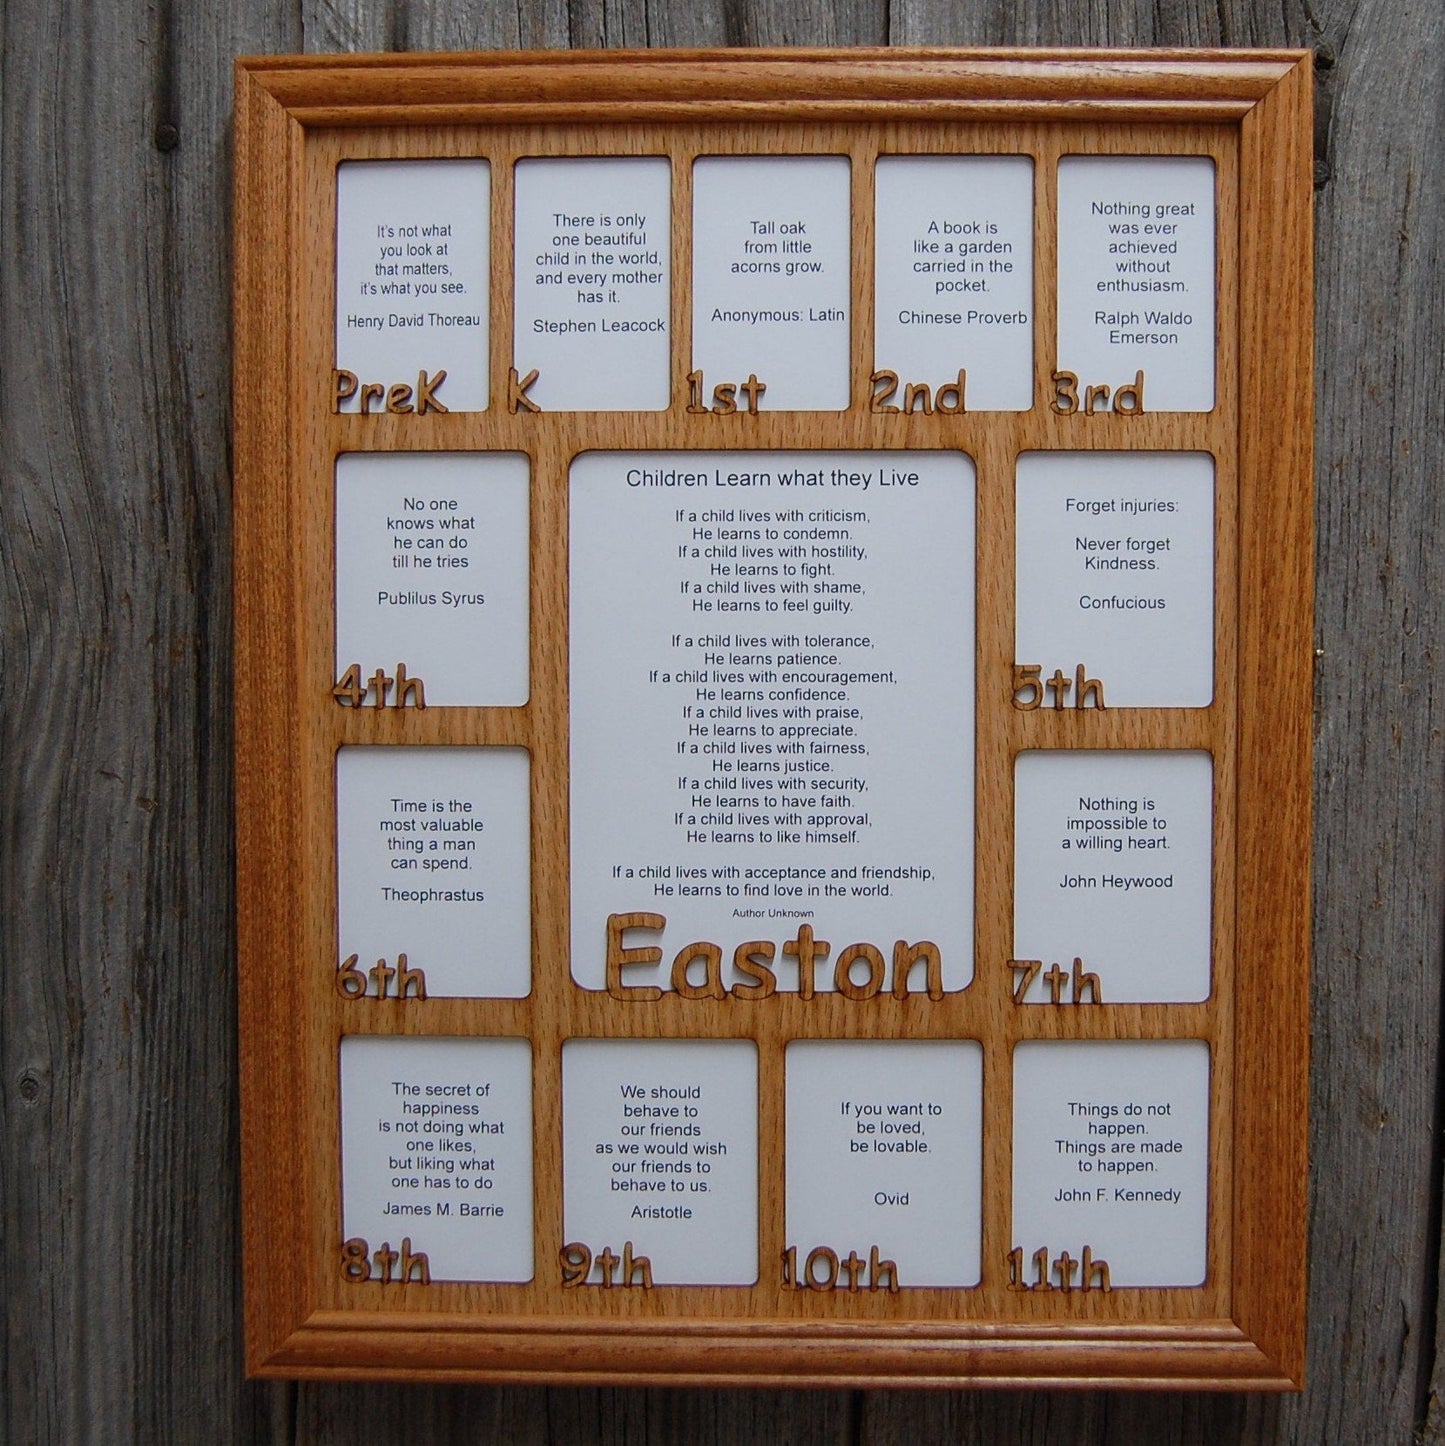 It's not what
you look at
that matters,
it's what you see.
Henry David Thoreau
PreK
There is only
one beautiful
child in the world,
and every mother
has it.
Stephen Leacock
K
Tall oak
from little
acorns grow.
Anonymous: Latin
1st
A book is
like a garden
carried in the
pocket.
Chinese Proverb
2nd
Nothing great
was ever
achieved
without
enthusiasm.
Ralph Waldo
Emerson
3rd
No one
knows what
he can do
till he tries
Publilus Syrus
4th
Children Learn what they Live
If a child lives with criticism,
He learns to condemn.
If a child lives with hostility,
He learns to fight.
If a child lives with shame,
He learns to feel guilty.
If a child lives with tolerance,
He learns patience.
If a child lives with encouragement,
He learns confidence.
If a child lives with praise,
He learns to appreciate.
If a child lives with fairness,
He learns justice.
If a child lives with security,
He learns to have faith.
If a child lives with approval,
He learns to like himself.
If a child lives with acceptance and friendship,
He learns to find love in the world.
Author Unknown
Easton
Forget injuries:
Never forget
Kindness.
Confucious
5th
Time is the
most valuable
thing a man
can spend.
Theophrastus
6th
Nothing is
impossible to
a willing heart.
John Heywood
7th
The secret of
happiness
is not doing what
one likes,
but liking what
one has to do
James M. Barrie
8th
We should
behave to
our friends
as we would wish
our friends to
behave to us.
Aristotle
9th
If you want to
be loved,
be lovable.
Ovid
10th
Things do not
happen.
Things are made
to happen.
John F. Kennedy
11th